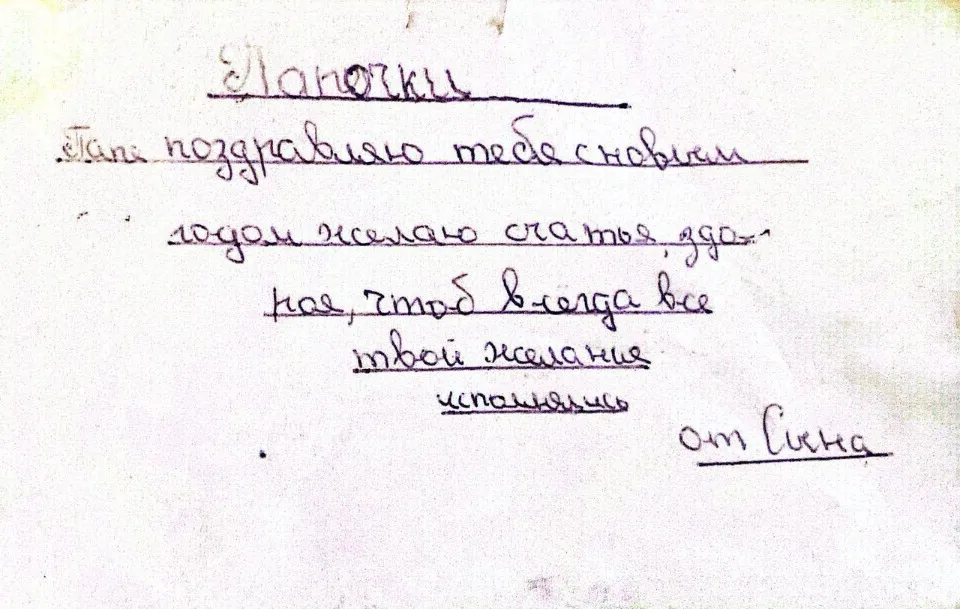 Папочки
Папа поздравляю тебя с новым
годом желаю счастья, здо-
рая, чтоб всегда все
твой желания
исполнялись
от Сына